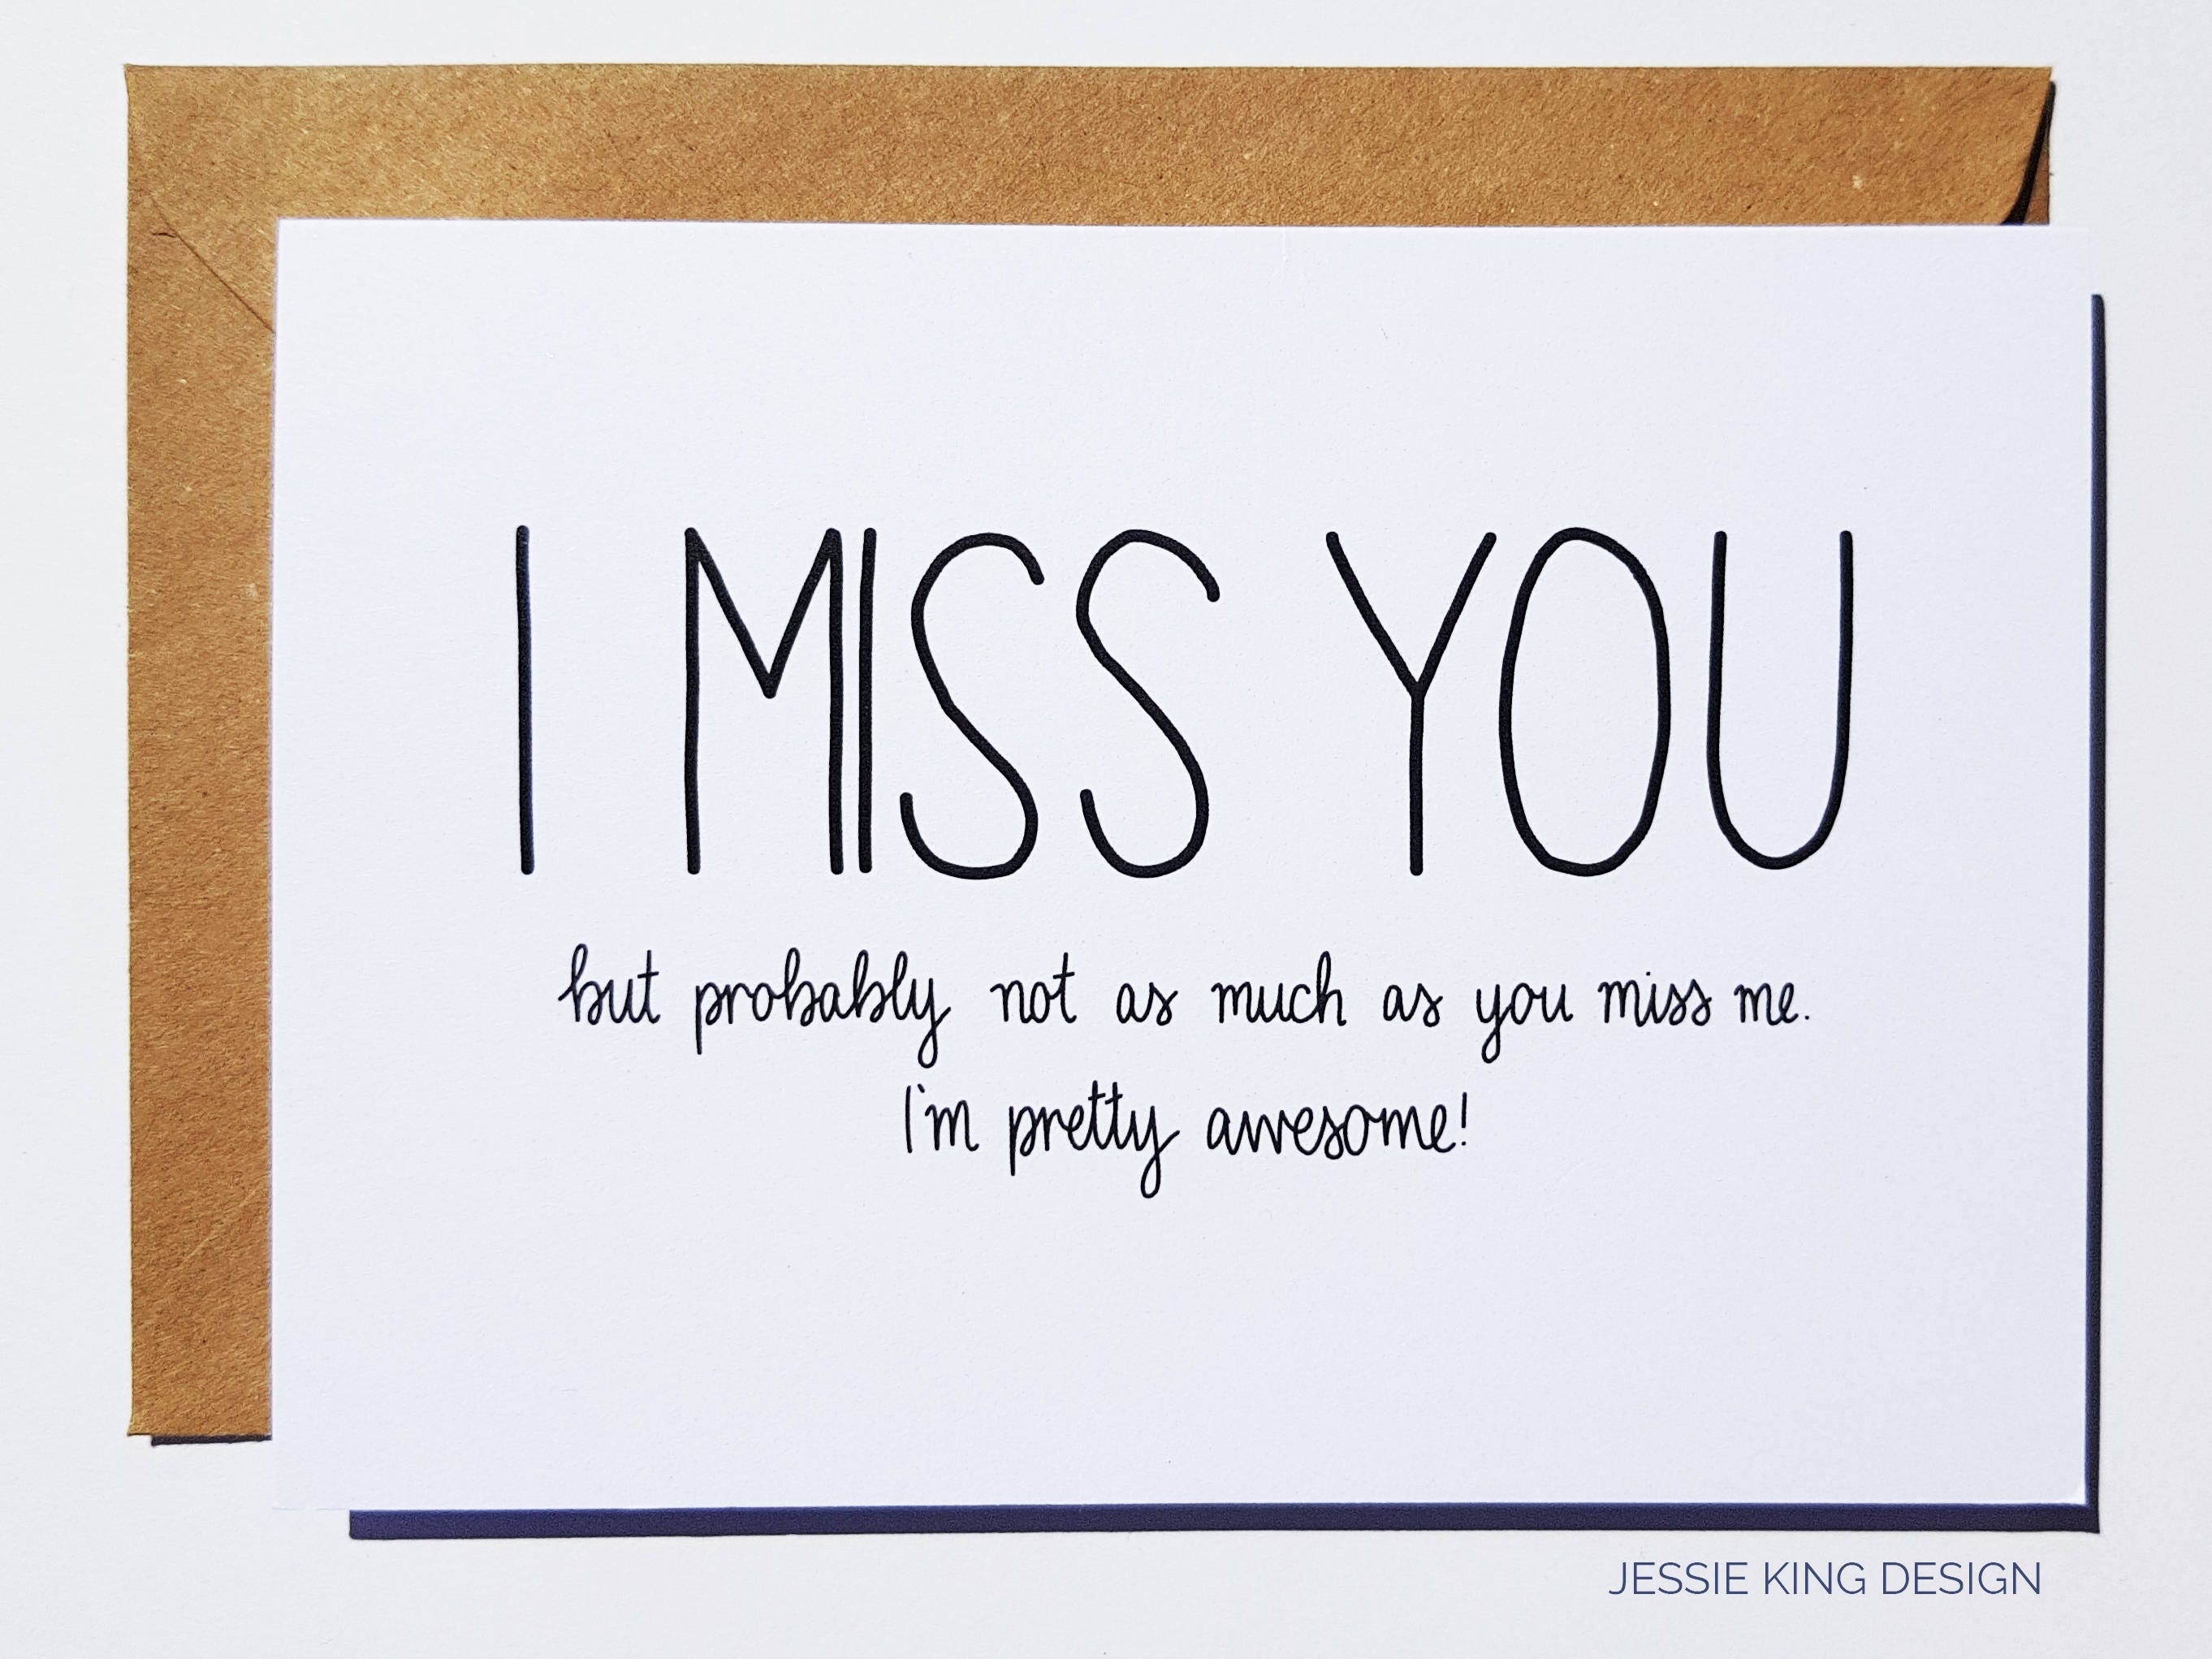 I MISS YOU
but probably not as much as you miss me.
I'm pretty awesome!
JESSIE KING DESIGN